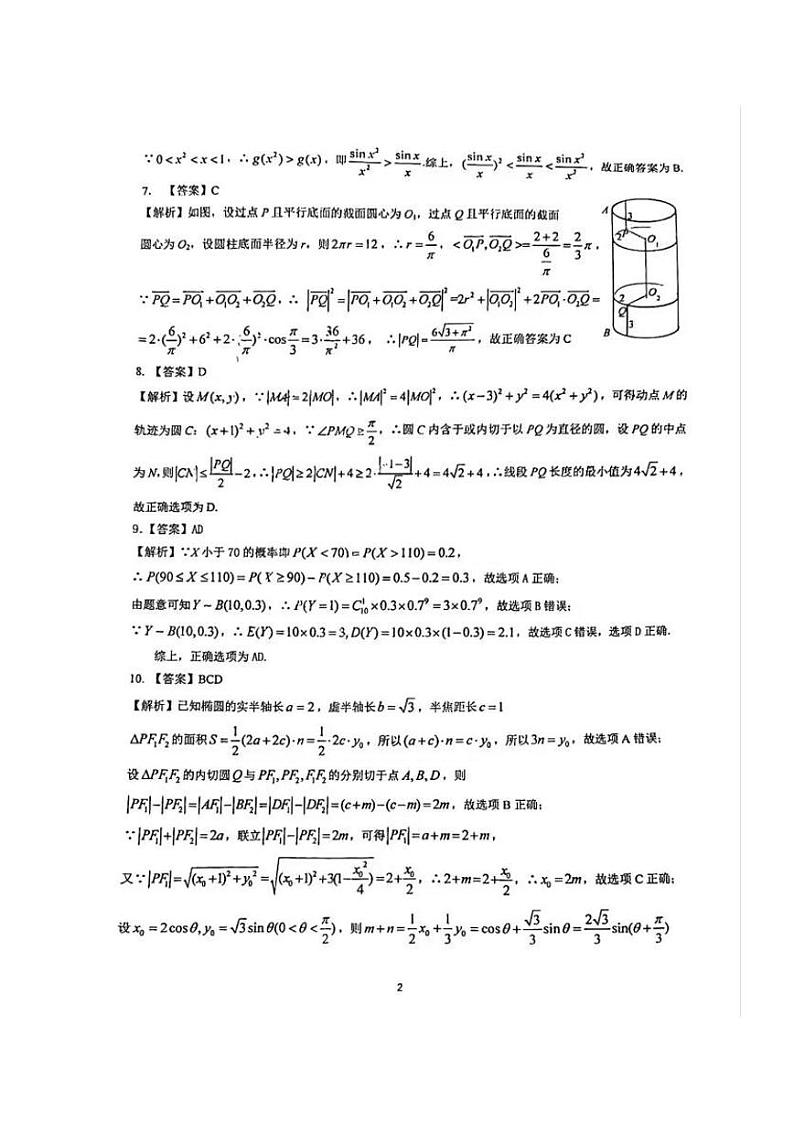 ∵0<x²<x<1，∴g(x²)>g(x)，即 sin x²/x² > sin x/x.综上，(sin x/x)² < sin x/x < sin x²/x²，故正确答案为 B.
7. 【答案】C
【解析】如图，设过点 P 且平行底面的截面圆心为 O₁，过点 Q 且平行底面的截面
圆心为 O₂，设圆柱底面半径为 r，则2πr=12，∴r=6/π，<O₁P,O₂Q>=(2+2)/(6/π)=2/3π，
∵PQ=PO₁+O₁O₂+O₂Q，∴|PQ|²=|PO₁+O₁O₂+O₂Q|²=2r²+|O₁O₂|²+2PO₁·O₂Q=
=2·(6/π)²+6²+2·(6/π)²·cos π/3=3·36/π²+36，∴|PQ|=6√(3+π²)/π，故正确答案为 C
A 3 2 P O₁ 2 O₂ Q 3 B
8. 【答案】D
【解析】设M(x,y)，∵|MA|=2|MO|，∴|MA|²=4|MO|²，∴(x-3)²+y²=4(x²+y²)，可得动点 M 的
轨迹为圆 C：(x+1)²+y²=4，∵∠PMQ≥π/2，∴圆 C 内含于或内切于以 PQ 为直径的圆，设 PQ 的中点
为 N，则|CN|≤|PQ|/2-2，∴|PQ|≥2|CN|+4≥2·|-1-3|/√2+4=4√2+4，∴线段 PQ 长度的最小值为4√2+4，
故正确选项为 D.
9.【答案】AD
【解析】∵X 小于 70 的概率即 P(X<70)=P(X>110)=0.2，
∴P(90≤X≤110)=P(X≥90)-P(X≥110)=0.5-0.2=0.3，故选项 A 正确；
由题意可知Y~B(10,0.3)，∴P(Y=1)=C₁₀¹×0.3×0.7⁹=3×0.7⁹，故选项 B 错误；
∵Y~B(10,0.3)，∴E(Y)=10×0.3=3,D(Y)=10×0.3×(1-0.3)=2.1，故选项 C 错误，选项 D 正确.
综上，正确选项为 AD.
10. 【答案】BCD
【解析】已知椭圆的实半轴长a=2，虚半轴长b=√3，半焦距长c=1
ΔPF₁F₂的面积S=1/2(2a+2c)·n=1/2·2c·y₀，所以(a+c)·n=c·y₀，所以3n=y₀，故选项 A 错误；
设ΔPF₁F₂的内切圆Q与PF₁,PF₂,F₁F₂的分别切于点A,B,D，则
|PF₁|-|PF₂|=|AF₁|-|BF₂|=|DF₁|-|DF₂|=(c+m)-(c-m)=2m，故选项 B 正确；
∵|PF₁|+|PF₂|=2a，联立|PF₁|-|PF₂|=2m，可得|PF₁|=a+m=2+m，
又∵|PF₁|=√((x₀+1)²+y₀²)=√((x₀+1)²+3(1-x₀²/4))=2+x₀/2，∴2+m=2+x₀/2，∴x₀=2m，故选项 C 正确；
设x₀=2cosθ,y₀=√3sinθ(0<θ<π/2)，则m+n=1/2x₀+1/3y₀=cosθ+√3/3sinθ=2√3/3sin(θ+π/3)
2